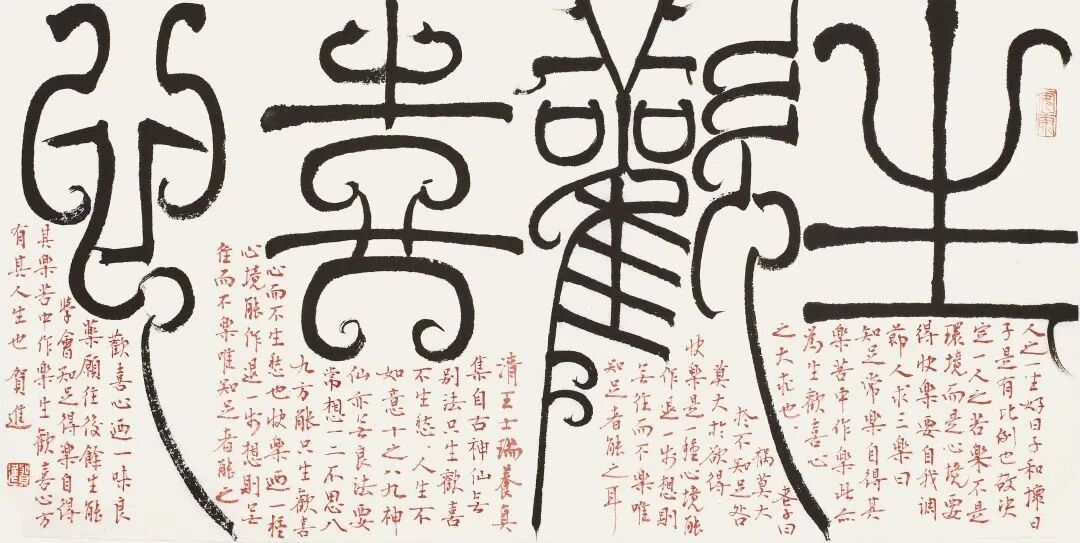 生歡喜心
人之一生好日子和壞日
子是有比例也故决
定一人之苦樂不是
環境而是心境要
得快樂要自我調
節人求三樂曰
知足常樂自得其
樂苦中作樂此亦
為生歡喜心
之大求也
老子曰
禍莫大
於不知足咎
莫大於欲得
快樂是一種心境能
作退一步想則
无往而不樂唯
知足者能之耳
清王士瑞養真
集自古神仙无
別法只生歡喜
不生愁人生不
如意十之八九神
仙亦无良法要
常想一二不思八
九方能只生歡喜
心而不生愁也快樂迺一種
心境能作退一步想則无
往而不樂唯知足者能之
歡喜心迺一味良
藥願往後餘生能
學會知足得樂自得
其樂苦中作樂生歡喜心方
有其人生也賀進